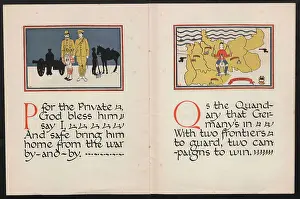 P for the Private
God bless him
say I,
And safe bring him
home from the war
by-and-by.
Q s the Quand-
ary that Ger-
many's in
With two frontiers
to guard, two cam-
paigns to win.